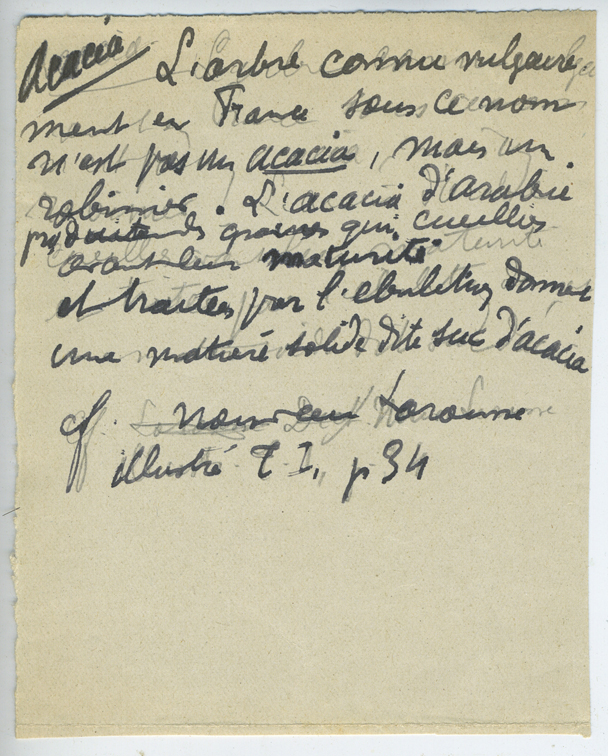 Acacia L'arbre connu vulgaire
ment en France sous ce nom
n'est pas un acacia, mais un
robinier. L'acacia d'arabie
produit des graines qui, cueillies
avant leur maturité
et traitées par l'ébulition donne
une matière solide dite suc d'acacia
cf. Nouveau Larousse
illustré T I, p 34